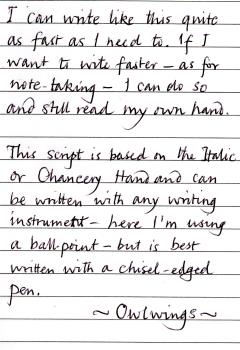 I can write like this quite
as fast as I need to. If I
want to write faster – as for
note-taking – I can do so
and still read my own hand.
This script is based on the Italic
or Chancery Hand and can
be written with any writing
instrument – here I'm using
a ball-point – but is best
written with a chisel-edged
pen.
~ Owlwings ~